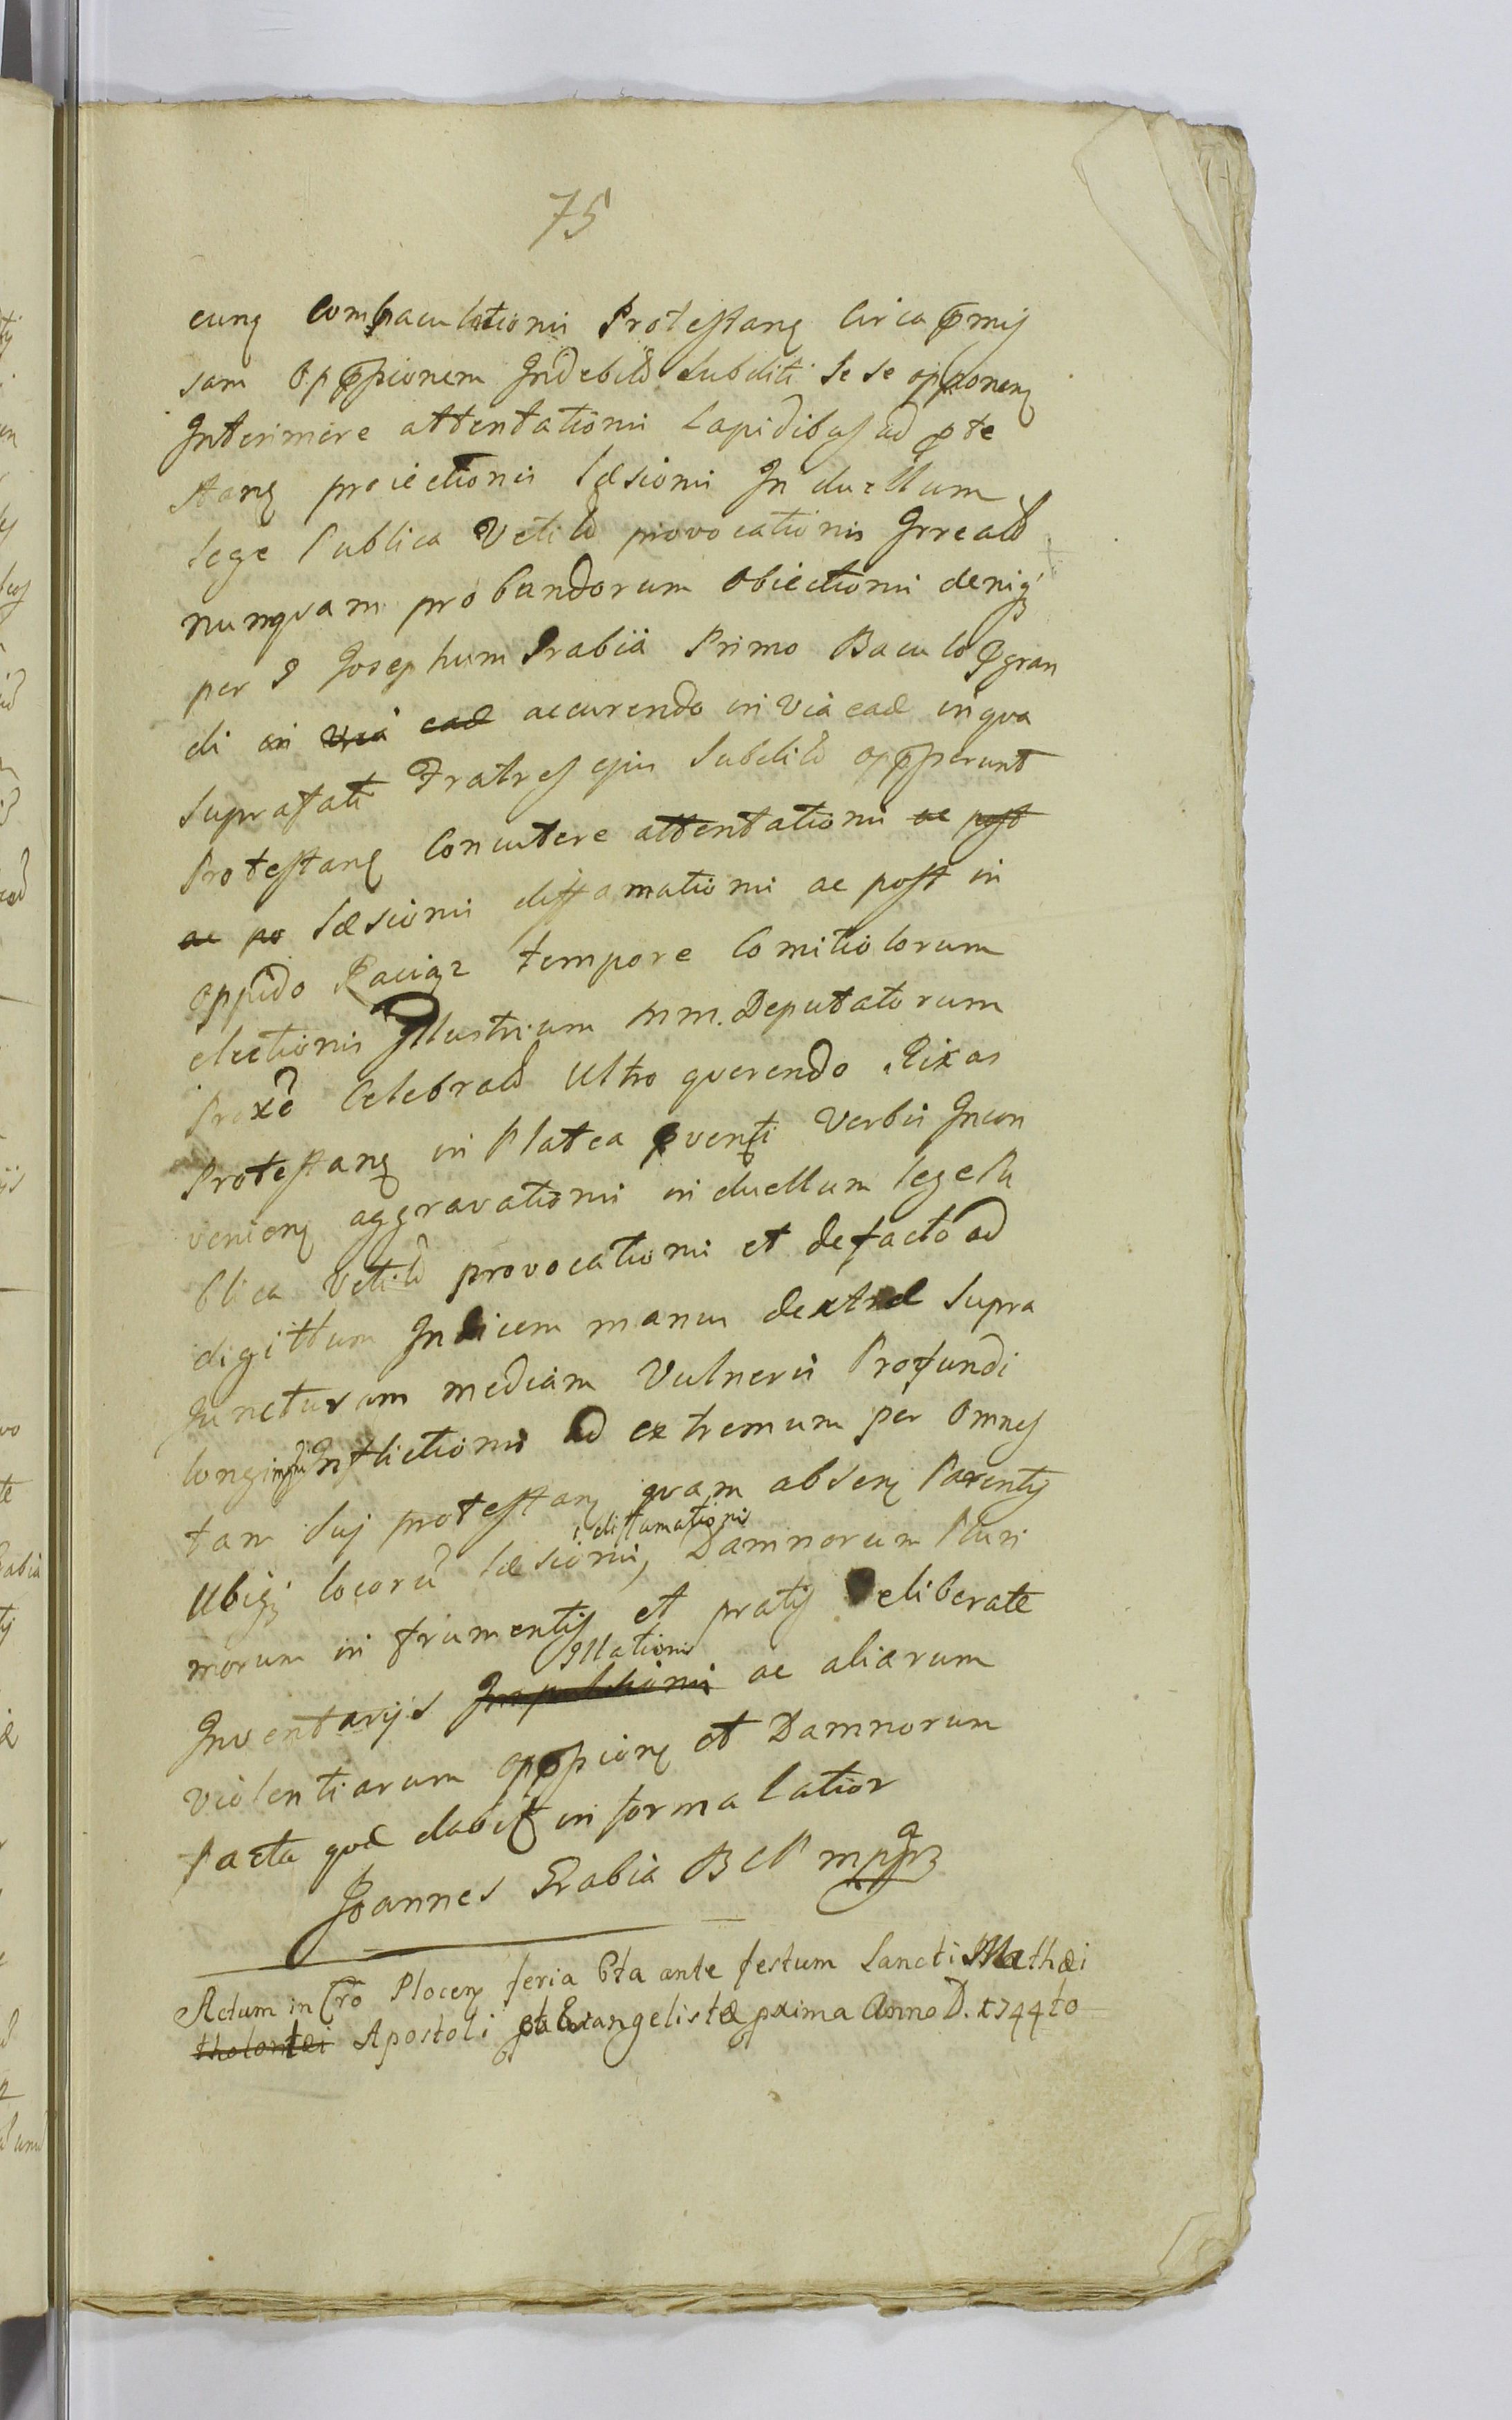 75
cunq Combaculationis Protestanq Circa pmis
sam Oppsionem Indebitã Subditi se se opponenq
Interimere attentationis Lapidibus ad pte
stanq proiectionis læsionis In duellum
lege Publica Vetitã provocationis Irreatã
nunquam probandorum Obiectionis deniq
per G Josephum Grabia Primo Baculo pgran
di in via ead accurendo in via ead in qva
suprafati Fratres ejus Subditã oppserunt
Protestanq Concutere attentationis ac post
ac po læsionis diffamationis ac post in
oppido Raciąz tempore Comitiolorum
electionis Illustrium MM. Deputatorum
Proxe Celebratã Ultro qverendo Rixas
Protestanq in Platea pventi Verbis Incon
venienq aggravationis in duellum lege Pu
blica Vetitã provocationis et de facto ad
digittum Indicem manus dextræ Supra
Juncturam mediam Vulneris Profundi
longinqui Inflictionis ad extremum per Omnes
tam Suj protestanq qvam absenq Parentis
Ubiq locorũ læsionis, diffamationis Damnorum Pluri
morum in frumentis et pratis Deliberate
Inventarijs Impulsionis Illationis ac aliarum
violentiarum oppsionq et Damnorum
Pacta qvæ dabit in forma latior
Joannes Grabia B C P mppa
Actum in Cro Plocen feria 6ta ante festum Sancti Mathæi
tholomæi Apostoli et Evangelistæ pxima Anno D. 1744to